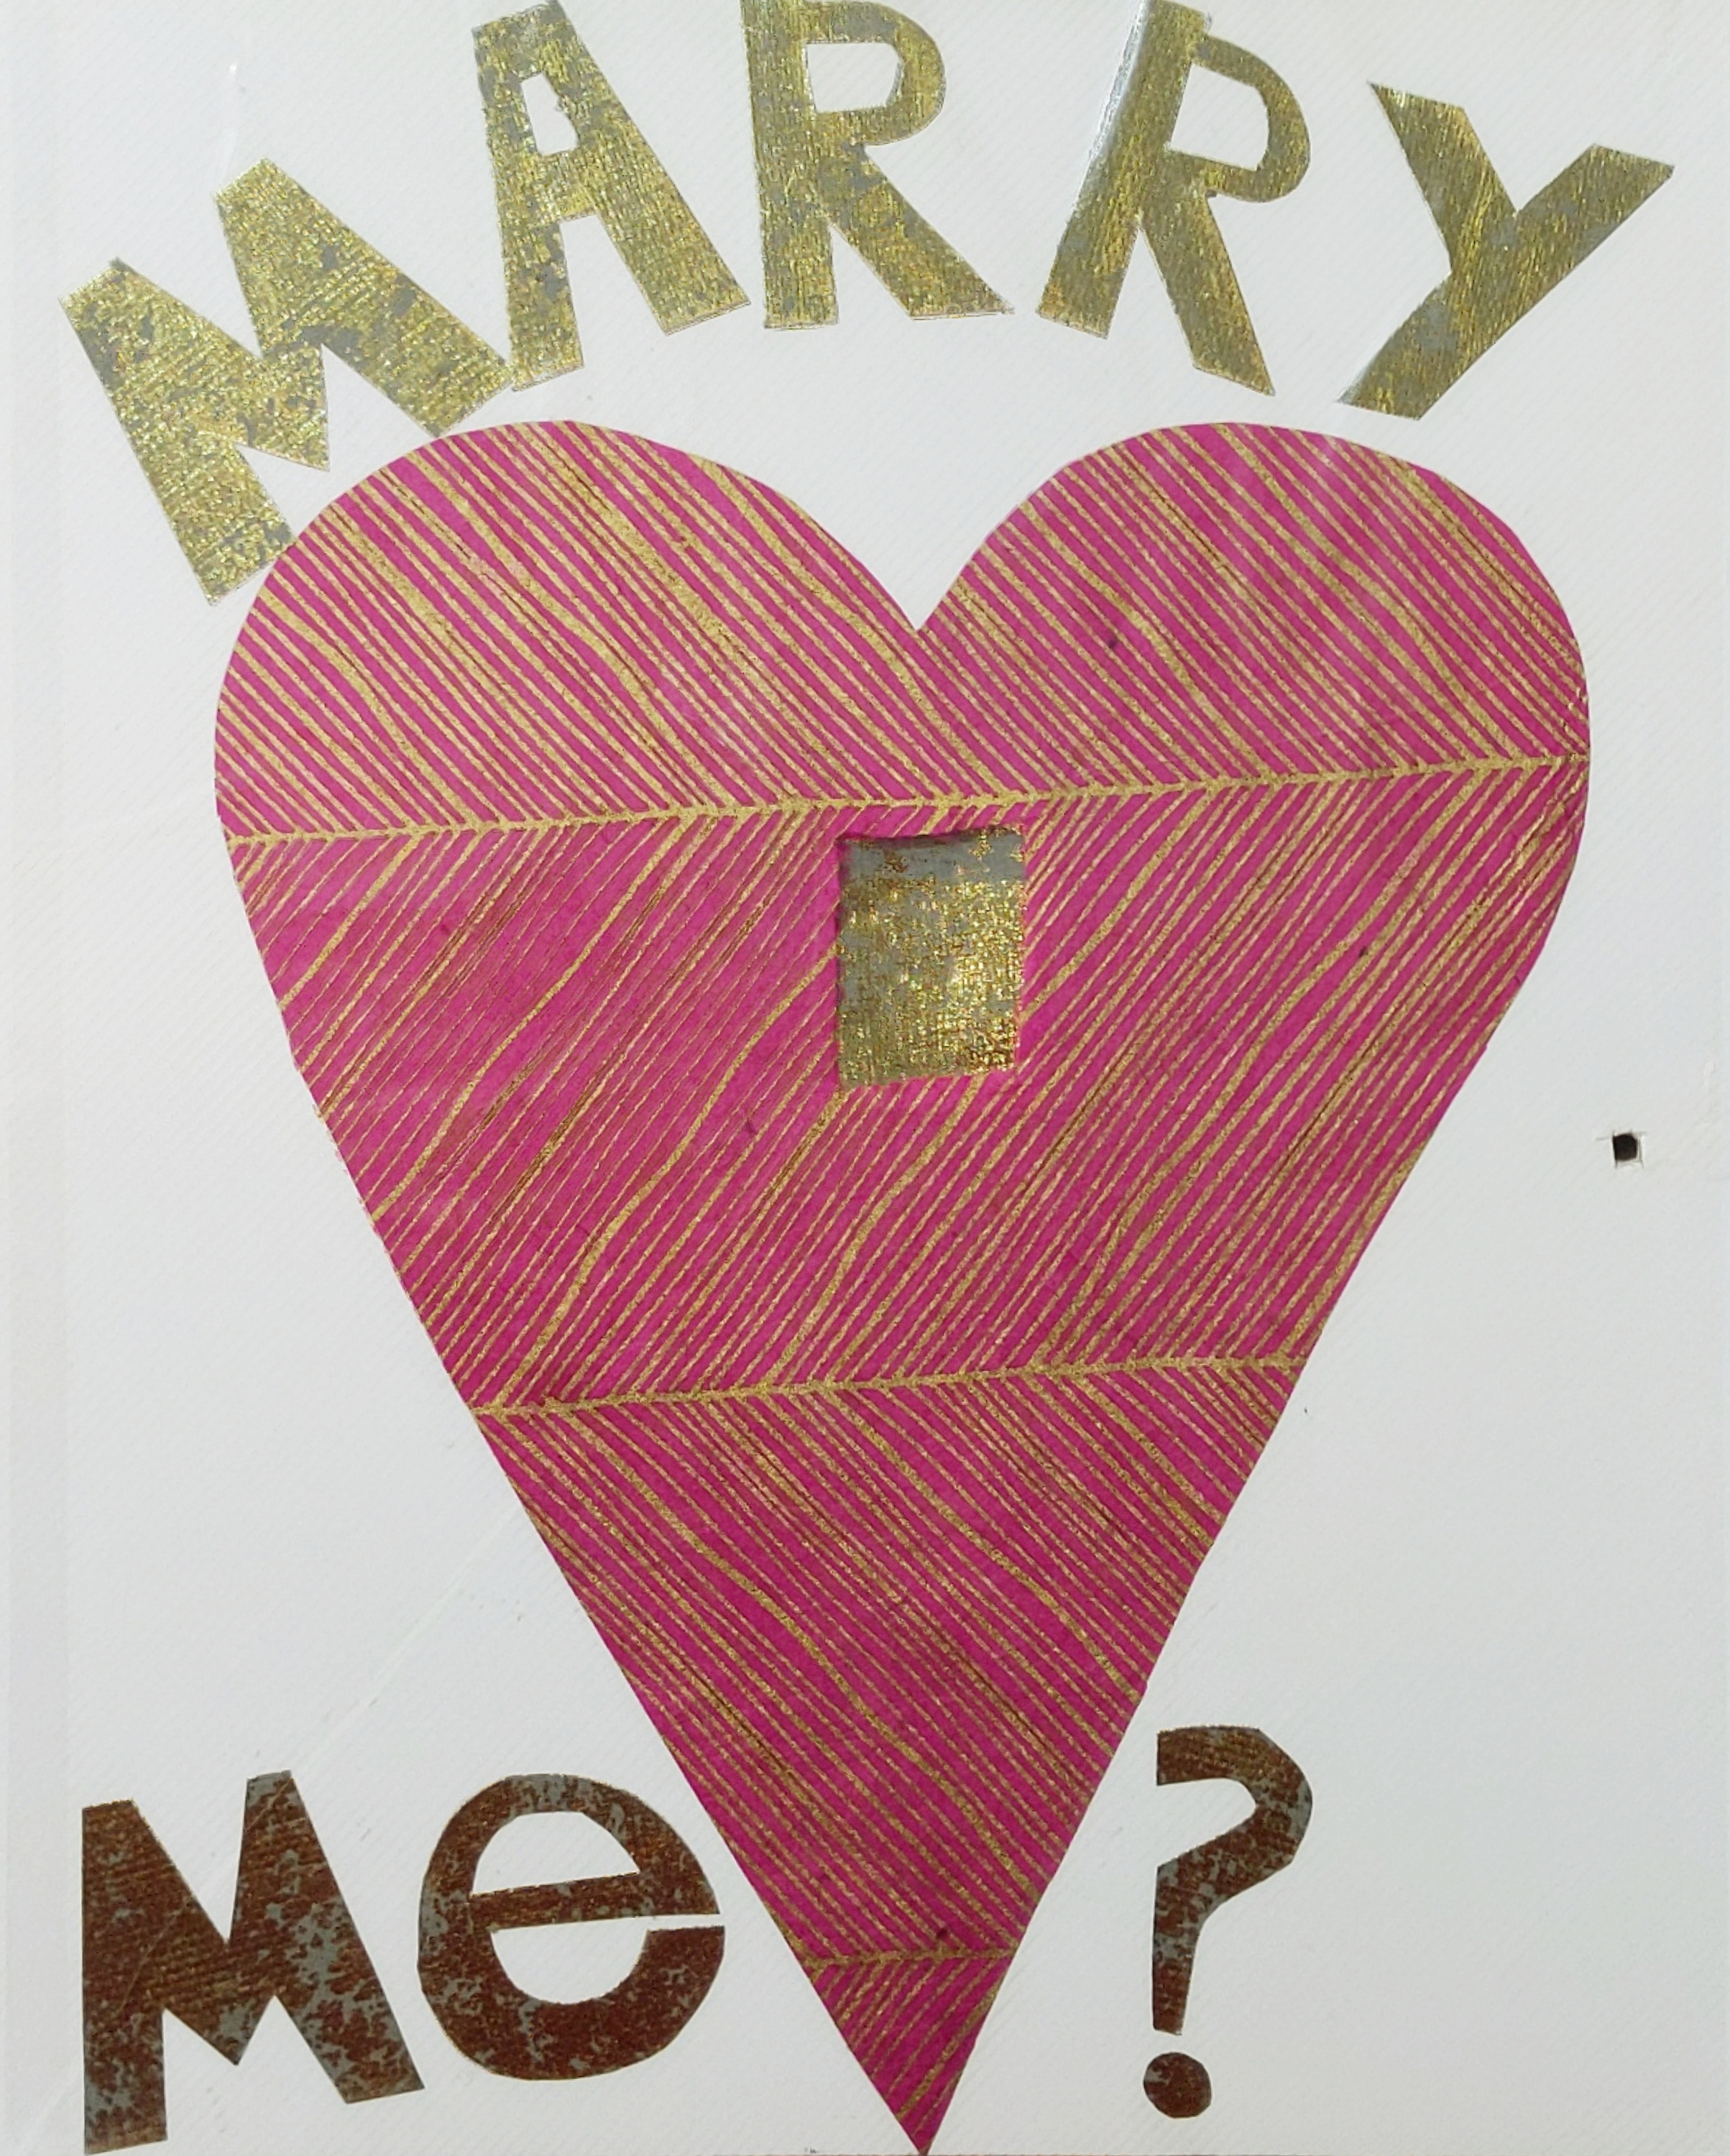 MARRY
Me ?